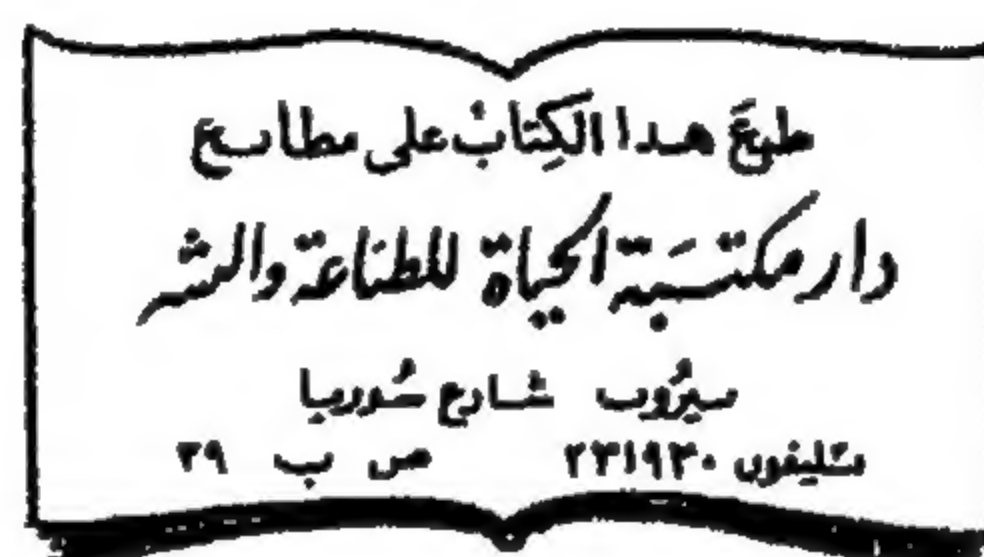 طبع هذا الكِتابُ على مطابع
دار مكتبة الحياة للطباعة والنشر
بيرُوت شارع سُوريا
تليفون ٢٣١٩٣٠ ص ب ٣٩